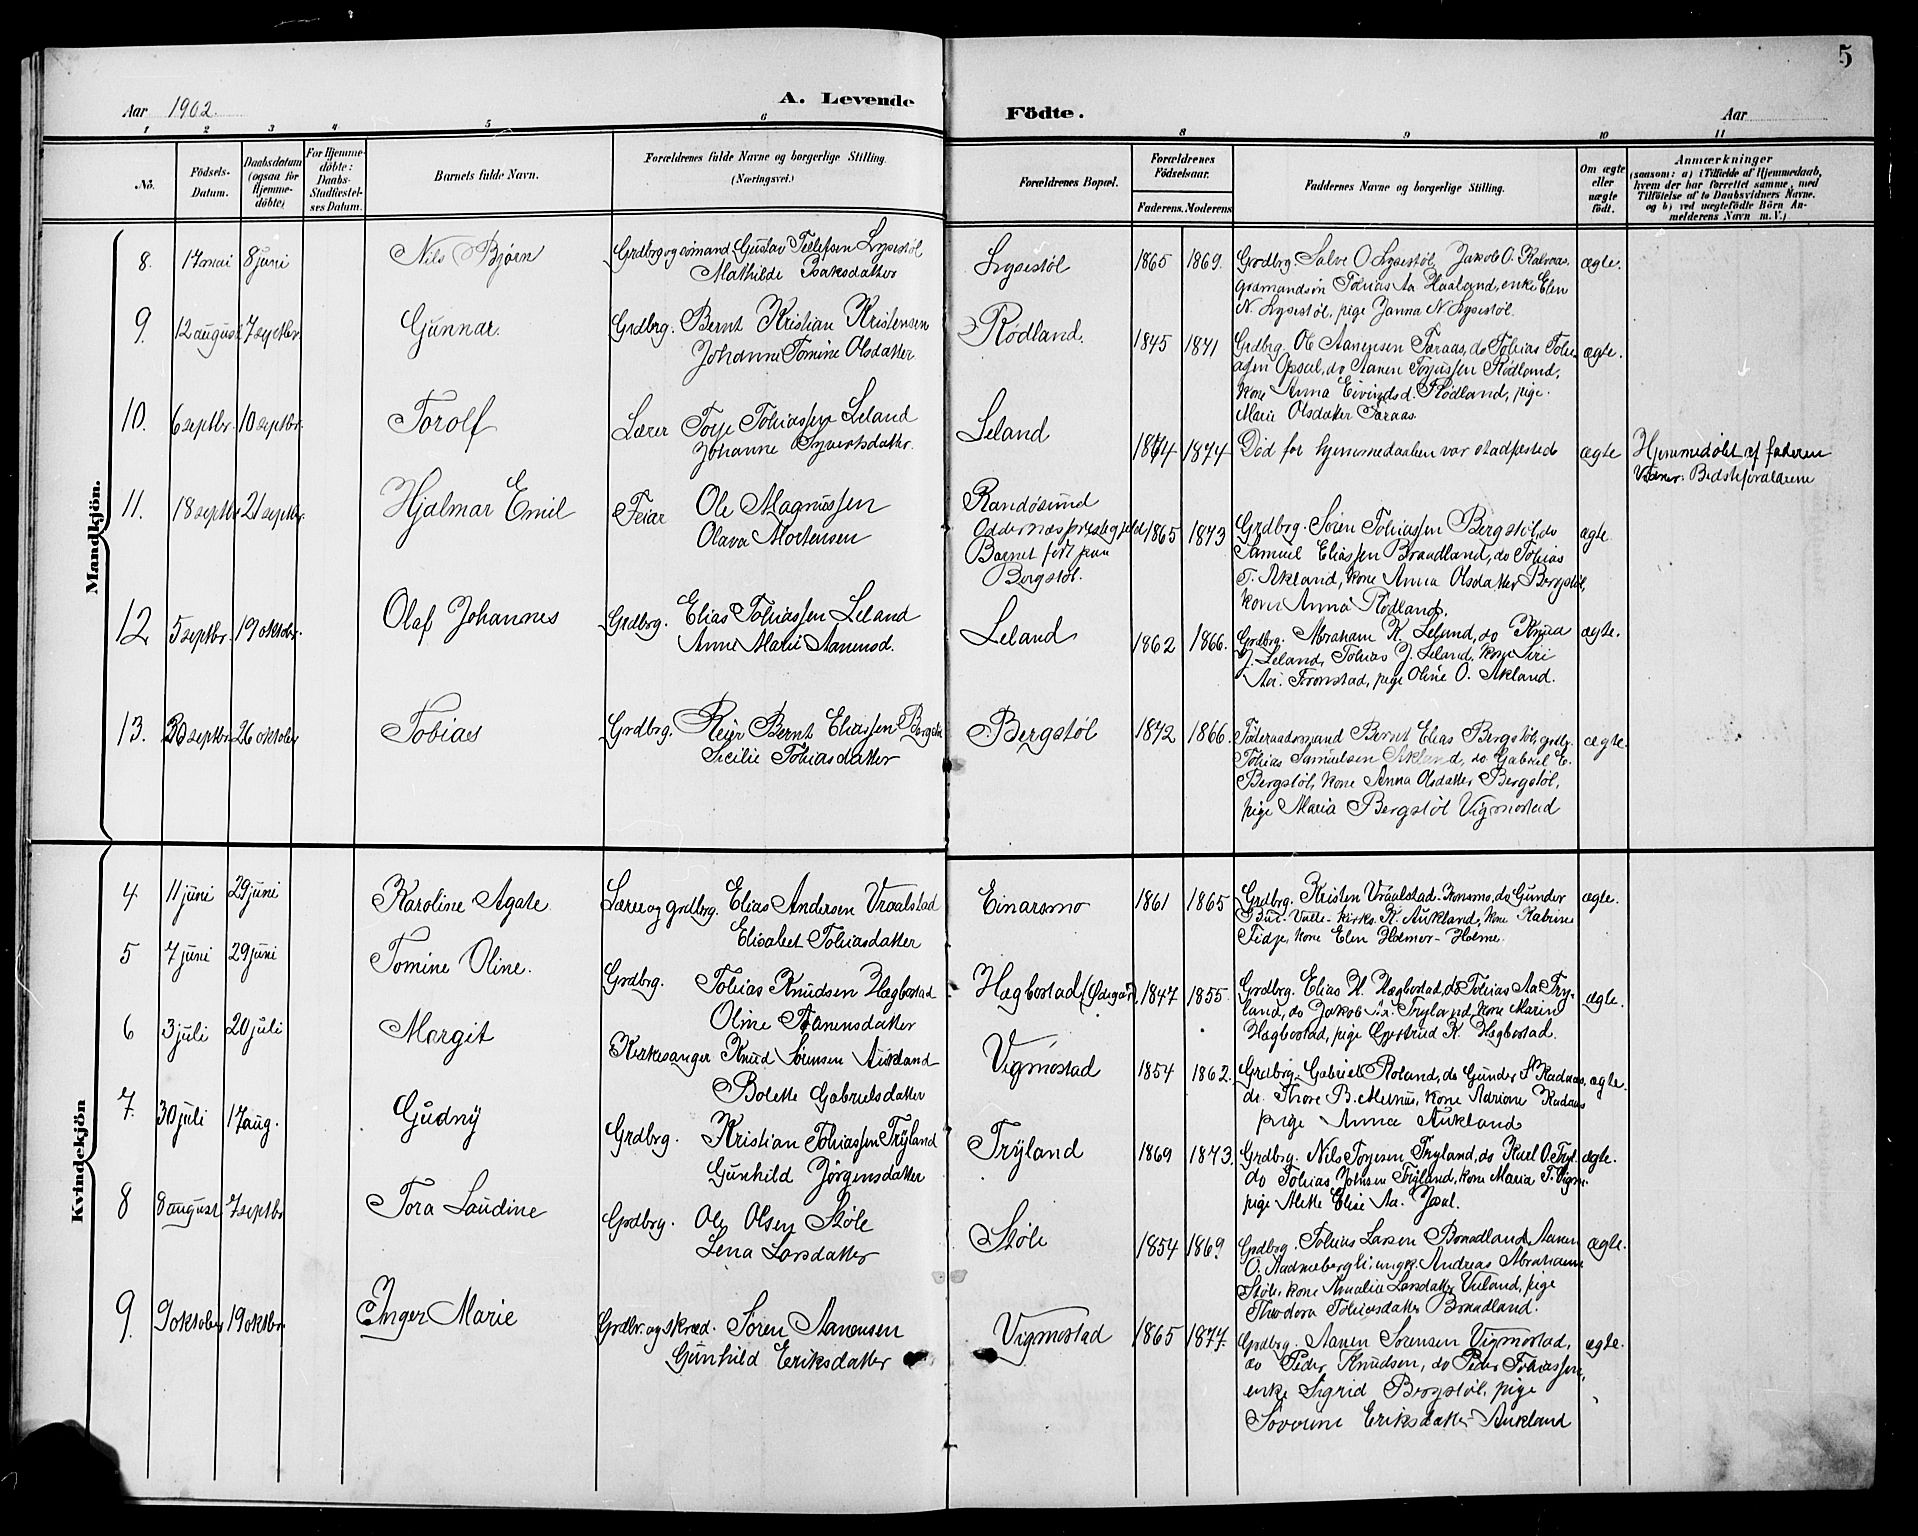 5
Aar 1902.
A. Levende
Födte.
Aar
1 2 3 4 5 6 8 9 10 11
No.
Födsels-
Datum.
Daabsdatum
(ogsaa for
Hjemme-
döbte)
For Hjemme-
döbte:
Daabs-
Stadfæstel-
ses Datum.
Barnets fulde Navn.
Forældrenes fulde Navne og borgerlige Stilling.
(Næringsvei.)
Forældrenes Bopæl.
Forældrenes
Födselsaar.
Faderens. Moderens
Faddernes Navne og borgerlige Stilling.
Om ægte
eller
uægte
födt.
Anmærkninger
(saasom: a) i Tilfælde af Hjemmedaab,
hvem der har forrettet samme, med
Tilföielse af to Daabsvidners Navne,
og b) ved uægtefödte Börn An-
melderens Navn m. V.)
Mandkjön.
8. 17 mai 8 juni Nils Bjørn Grdbrg og sømand Gustav Tellefsen Lysestøl
Mathilde Isaksdatter
Lysestøl 1865 1869. Grdbrg. Salve O Lysestøl, Jakob O. Kalvaas, ægte.
grdmandsøn Tobias Aa Haaland, enke Elen
N. Lysestøl, pige Janna N. Lysestøl.
9. 12 august 7 septbr. Gunnar. Grdbrg. Bernt Kristian Kristensen
Johanne Tomine Olsdatter
Rødland. 1845 1871 Grdbrg. Ole Aanensen Faraas, do Tobias Tobi- ægte.
asen Opsal, do Aanen Torjussen Rødland,
kone Anna Eivindsd. Rødland, pige
Marie Olsdatter Faraas.
10. 6 septbr. 10 septbr. Torolf Lærer Torje Tobiassen Leland
Johanne Syvertsdatter.
Leland 1874 1874 Død før hjemmedaaben var stadfæstede ægte Hjemmedøbt af faderen
Vidner: Bedsteforældrene
11. 18 septbr 21 septbr. Hjalmar Emil Feiar Ole Magnussen
Olava Mortensen
Randøsund
Oddernæs prestegjeld
Barnet født paa
Bergstøl.
1865 1873 Grdbrg. Søren Tobiassen Bergstøl, do ægte
Samuel Eliassen Braadland, do Tobias
T. Akland, kone Anna Olsdatter Bergstøl,
kone Anna Rødland.
12 5 septbr. 19 oktober. Olaf Johannes Grdbrg. Elias Tobiassen Leland
Anne Marie Aanensd.
Leland 1862 1866. Grdbrg. Abraham K. Leland, do Knud ægte.
J. Leland, Tobias J. Leland, kone Siri
Aa. Fronstad, pige Oline O. Akland.
13. 30 septbr. 26 oktober Tobias Grdbrg. Reier Bernt Eliassen Bergstøl
Sicilie Tobiasdatter
Bergstøl 1872 1866. Føderaadsmand Bernt Elias Bergstøl, grdbr. ægte.
Tobias Samuelsen Akland, do Gabriel E.
Bergstøl, kone Anna Olsdatter Bergstøl,
pige Maria Bergstøl Vigmostad
Kvindekjön
4 11 juni 29 juni Karoline Agate Lærer og grdbrg. Elias Andersen Vraalstad
Elisabet Tobiasdatter
Einarsmo 1861 1865 Grdbrg. Kristen Vraalstad, do Gunder ægte.
Bue-Valle- kirks. K. Aukland, kone Katrine
Fidje, kone Elen Holmer-Holme.
5 7 juni 29 juni Tomine Oline. Grdbrg. Tobias Knudsen Hægbostad
Oline Aanensdatter
Hægbostad (Ødegår). 1847 1855. Grdbrg. Elias H. Hægbostad, do Tobias Aa Try- ægte.
land, do Jakob Aa. Tryland, kone Marin
Hægbostad, pige Gjertrud K. Hægbostad.
6 3 juli 20 juli Margit Kirkesanger Knud Sørensen Aukland
Bolette Gabrielsdatter
Vigmostad 1854 1862. Grdbrg. Gabriel Roland, do Gunder Kadnæs, ægte.
do. Thore B. kone Adriane Kadnæs
pige Anna Aukland
7. 30 juli 17 aug. Gudny Grdbrg. Kristian Tobiassen Tryland
Gunhild Jørgensdatter
Tryland 1869 1873. Grdbrg. Nils Torjesen Tryland, do Karl O. Tryl. ægte.
do Tobias Johnsen Tryland, kone Maria T. Vigm.
pige Alette Elise Aa.
8 8 august 7 septbr Tora Laudine Grdbrg. Ole Olsen Støle
Lena Larsdatter
Støle 1854 1869 Grdbrg. Tobias Larsen Braadland, Aanen ægte.
O. ungk. Andreas Abrahamsen
Støle, kone Amalia Larsdatter Ueland, pige
Theodora Tobiasdatter Braadland.
9. 9 oktober 19 oktbr. Inger Marie Grdbr. og skræd. Søren Aanensen
Gunhild Eriksdatter
Vigmostad 1865 1877. Grdbrg. Aanen Sørensen Vigmostad, ægte.
do Peder Knudsen, do Peder Tobiassen,
enke Sigrid Bergstøl, pige
Severine Eriksdatter Aukland